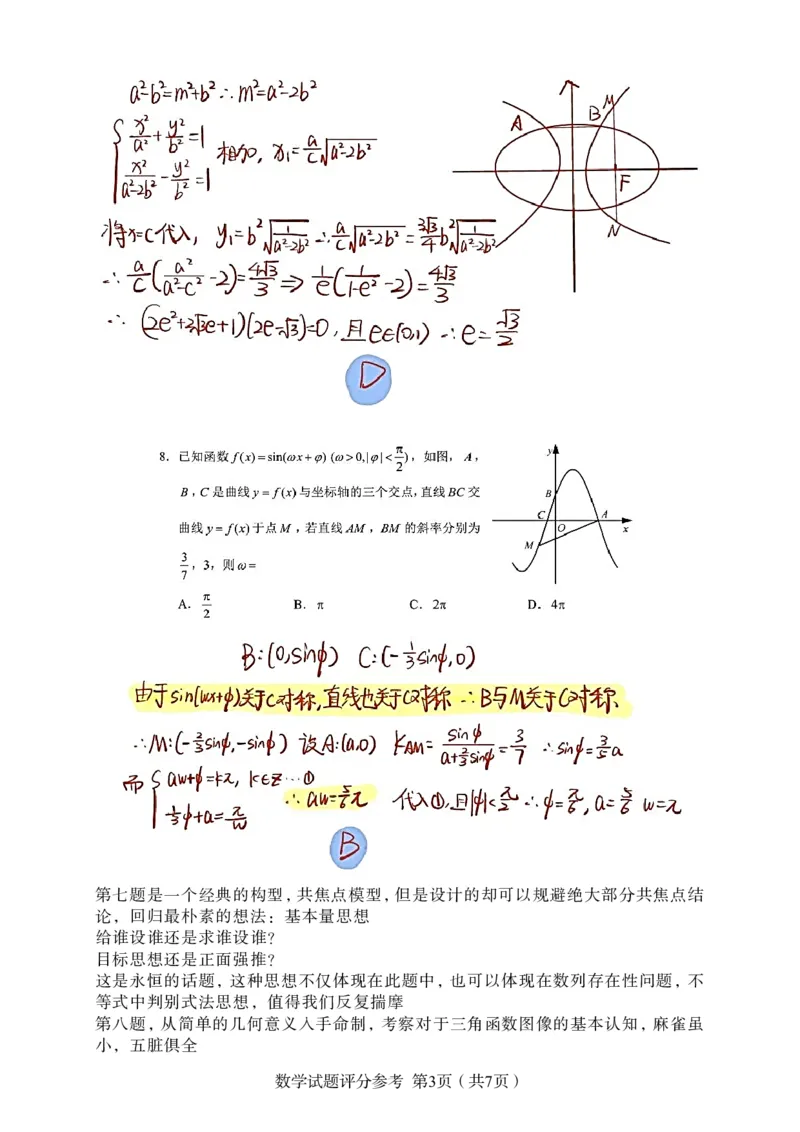 a²-b²=m²+b² ∴m²=a²-2b²
A B M F N
{ x²/a² + y²/b² = 1
x²/(a²-2b²) - y²/b² = 1
相加, x₁= a/c √(a²-2b²)
将x=c代入, y₁=b²√(1/(a²-2b²)) ∴ a/c √(a²-2b²) = 3√3/4 b²√(1/(a²-2b²))
∴ a/c (a²/(a²-c²) -2)= 4√3/3 ⇒ 1/e (1/(1-e²) -2)= 4√3/3
∴ (2e²+2√3e+1)(2e-√3)=0, 且e∈(0,1) ∴e= √3/2
D
8. 已知函数 f(x)=sin(ωx+φ) (ω>0,|φ|<π/2), 如图, A,
B, C 是曲线 y=f(x) 与坐标轴的三个交点, 直线 BC 交
曲线 y=f(x) 于点 M, 若直线 AM, BM 的斜率分别为
3/7, 3, 则 ω=
y B C O A x M
A. π/2 B. π C. 2π D. 4π
B:(0,sinφ) C:(-1/3sinφ,0)
由于sin(wx+φ)关于C对称,直线也关于C对称 ∴B与M关于C对称
∴M:(-2/3sinφ,-sinφ) 设A:(a,0) KAM= sinφ/(a+2/3sinφ) = 3/7 ∴sinφ= 3/5 a
而 { aw+φ=kπ, k∈z…①
1/3φ+a= π/w
∴ aw= 5/6π 代入①,且|φ|<π/2 ∴φ= π/6, a= 5/6 w=π
B
第七题是一个经典的构型，共焦点模型，但是设计的却可以规避绝大部分共焦点结
论，回归最朴素的想法：基本量思想
给谁设谁还是求谁设谁？
目标思想还是正面强推？
这是永恒的话题，这种思想不仅体现在此题中，也可以体现在数列存在性问题，不
等式中判别式法思想，值得我们反复揣摩
第八题，从简单的几何意义入手命制，考察对于三角函数图像的基本认知，麻雀虽
小，五脏俱全
数学试题评分参考 第3页（共7页）